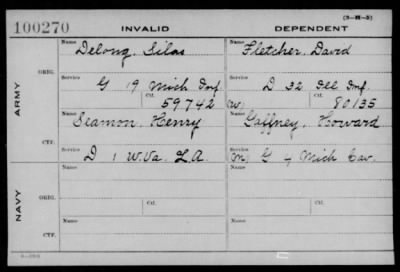 100270 INVALID DEPENDENT (3-H-3)
ARMY
ORIG.
Name Name
Delong, Silas Fletcher, David
Service Service
G 19 Mich Inf. D 32 Ill Inf.
Ctf. Ctf.
59742 (W) 80135
CTF.
Name Name
Seamon, Henry Gaffney, Howard
Service Service
D 1 W.Va. L.A. (M) G 4 Mich Cav.
NAVY
ORIG.
Name Name
Service Service
Ctf. Ctf.
CTF.
Name Name
Service Service